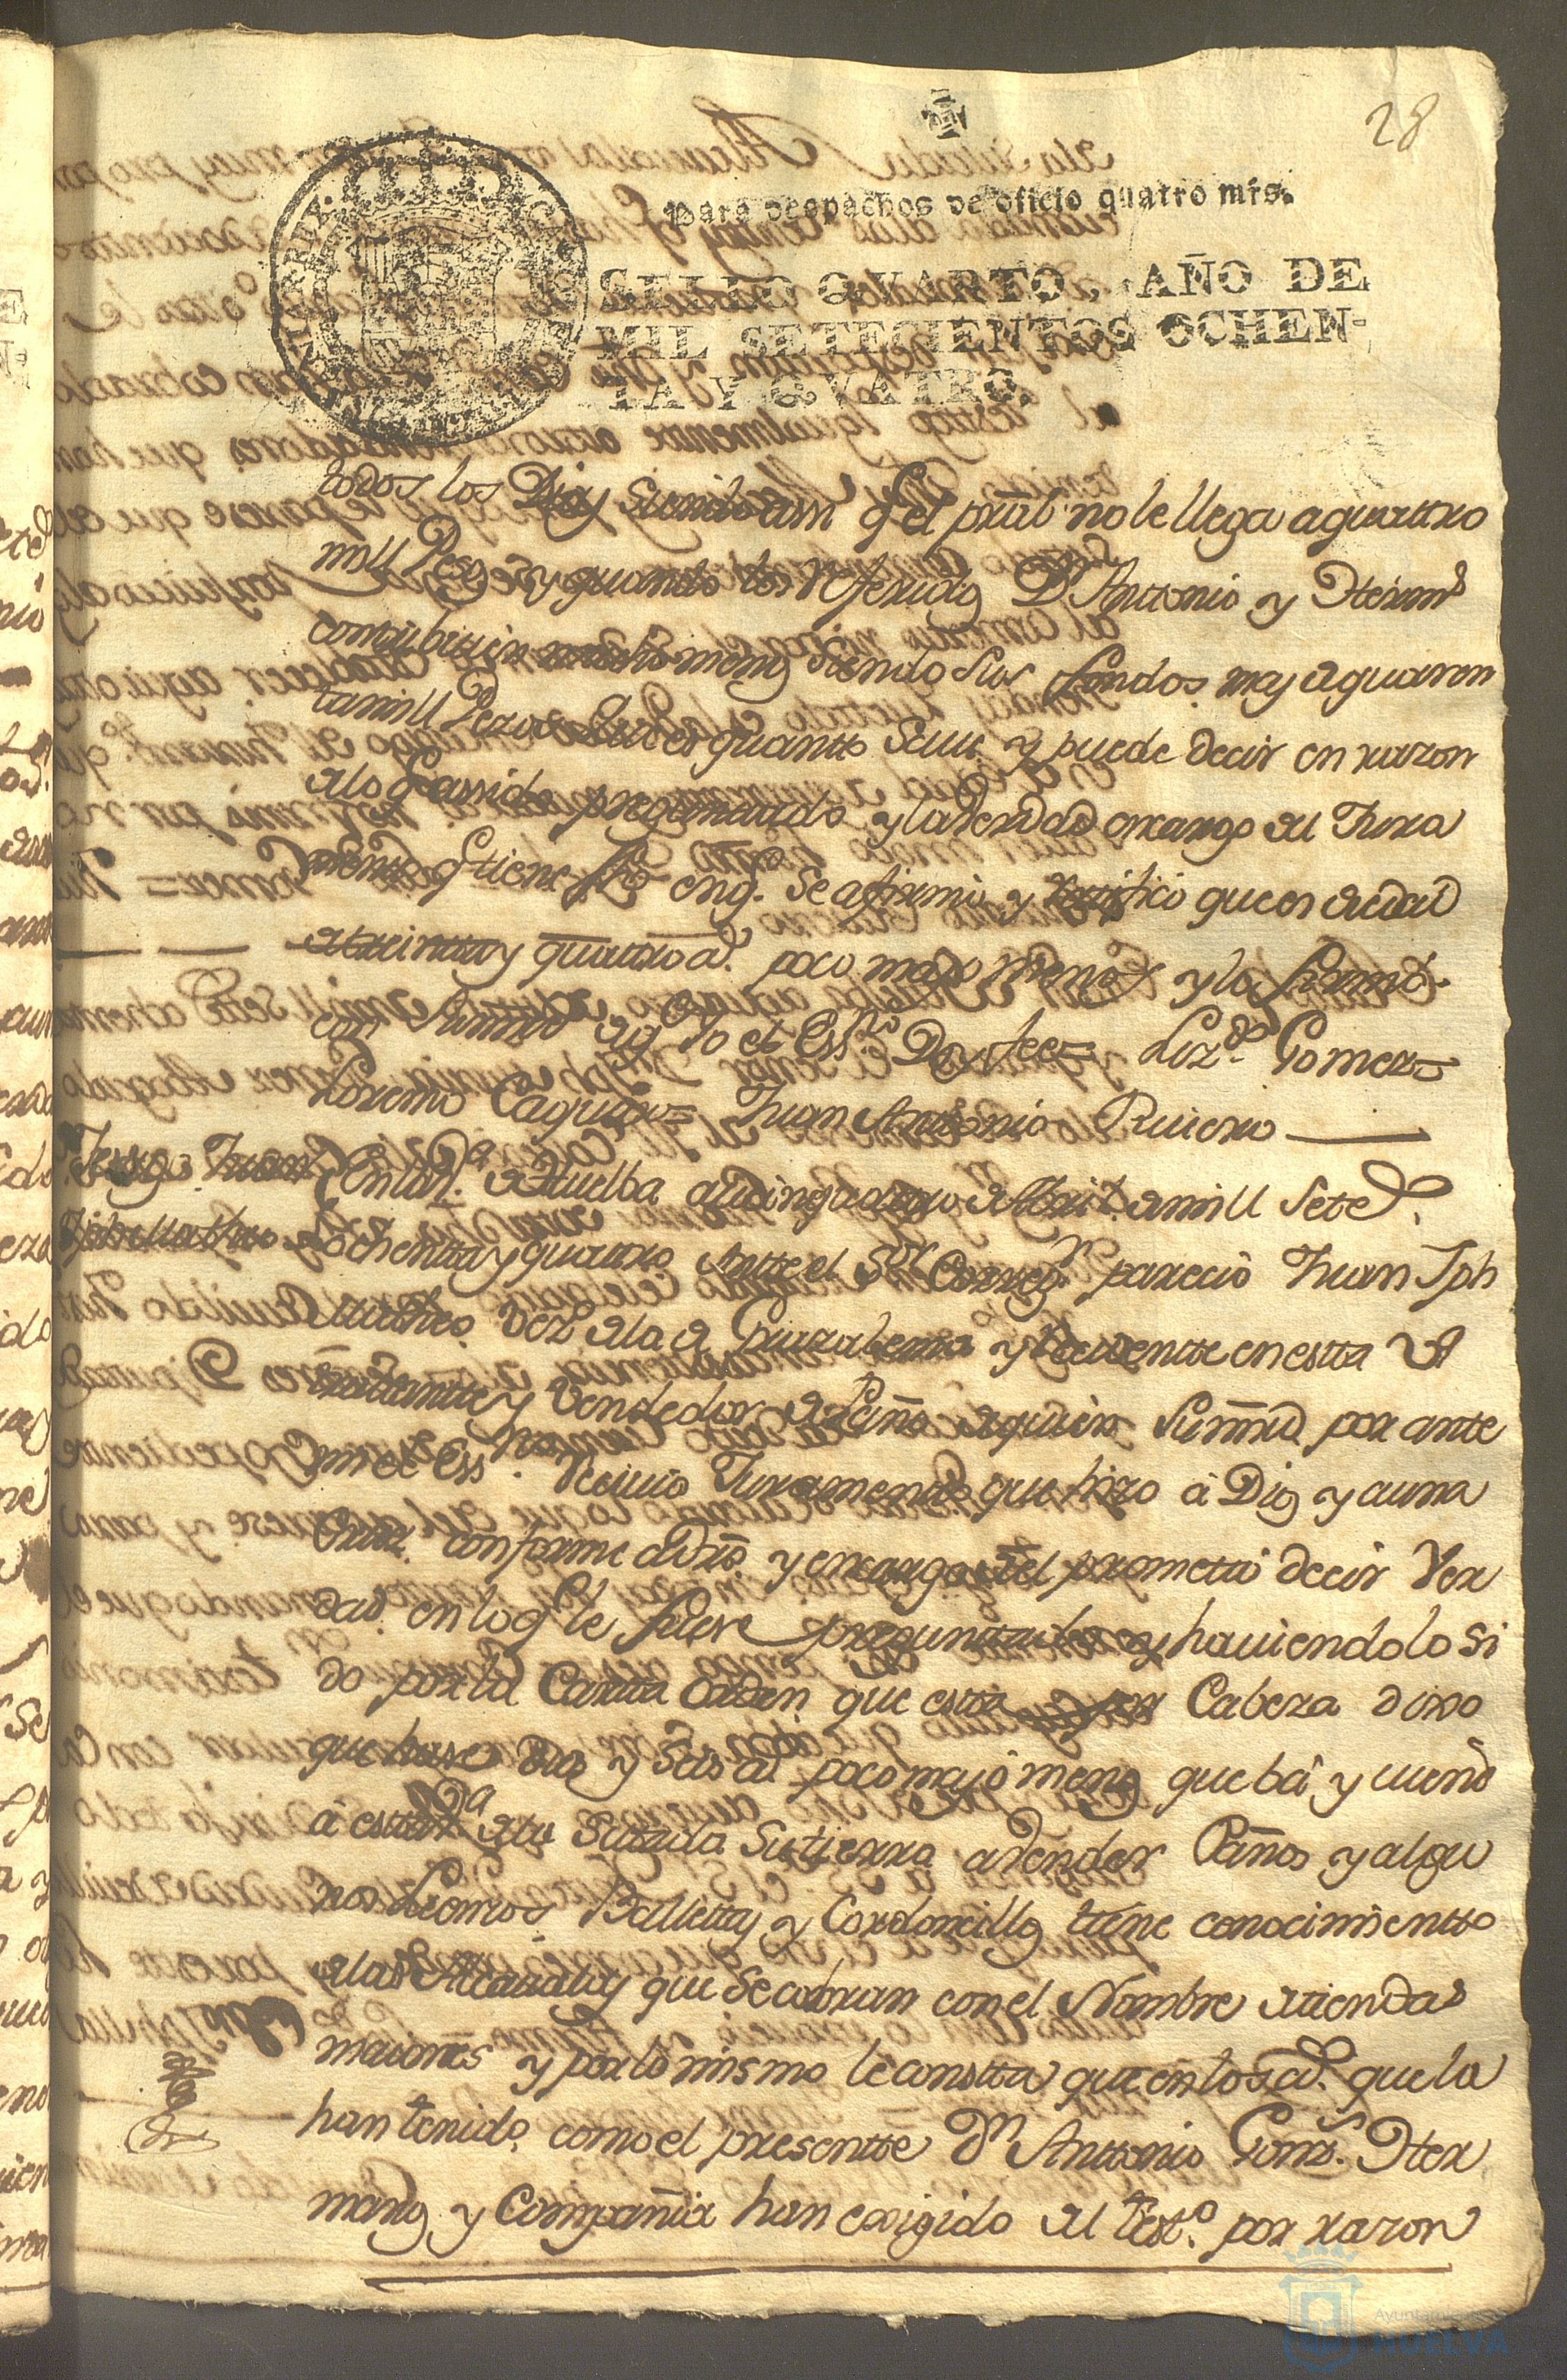 28
Para despachos de oficio quatro mrs.
SELLO QVARTO, AÑO DE
MIL SETECIENTOS OCHEN-
TA Y QVATRO.
todos los Dias siendo assi q̃ el prãl no le llega a quattro
mill Pesos y quando los referidos Dn Antonio y Herms
contribuien mucho menos siendo sus fondos mas a quaren
ta mill Pezos Que es quantto save y puede decir en razon
a lo q̃ ha sido preguntado y la verdad en cargo del Jura
mento q̃ tiene fho en q. se afirmó y ratificó que es de edad
de treinta y quattro ad. poco mas o menos y lo firmó
con Su mrd de q. Yo el Essno Doy fee = Lizdo Gomez =
Lorenzo = Juan Antonio Riviero
Testigo Juan
Jph Matheo
En la Va de Huelba a veinte de Abril de mill Setes
ochentta y quattro Antte el Sor Corregr parecio Juan Jph
Matheo Vezo de la de Grazalema y Residentte en estta Va
trattantte y Vendedor de Paños de quien Su mrd por ante
mi el Essno Recivió Juramento que hizo á Dios y a una
Cruz conforme a dro y en cargo del prometió decir Ver
dad en lo q̃ le fuere preguntado y haviendolo si
do por la Cartta orden que está por Cabeza dixo
que hase Dies y seis ad poco mas ó menos que bá y viene
á estta Va de la Su tierra a vender Paños y algu
nos LienzosBallettas y Cordoncillos tiene conocimientto
de las Alcavalas que se cobran con el Nombre de tiendas
maiores y por lo mismo le constta que en los ad. que la
han tenido, como el presentte Dn Antonio Gonzs. Her
manos y Compañia han exigido al testo por razon
Ayuntamiento de
HUELVA